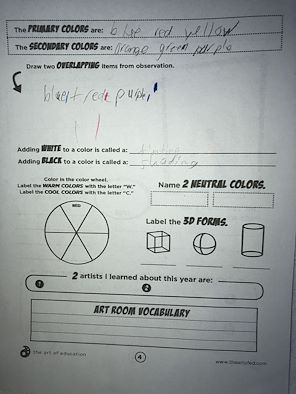 The PRIMARY COLORS are: blue red yellow
The SECONDARY COLORS are: Orange green purple
Draw two OVERLAPPING items from observation.
blue+red= purple
Adding WHITE to a color is called a:
Adding BLACK to a color is called a: shading
Color is the color wheel.
Label the WARM COLORS with the letter "W."
Label the COOL COLORS with the letter "C."
Name 2 NEUTRAL COLORS.
RED
Label the 3D FORMS.
2 artists I learned about this year are:
1
2
ART ROOM VOCABULARY
the art of education
4
www.theartofed.com